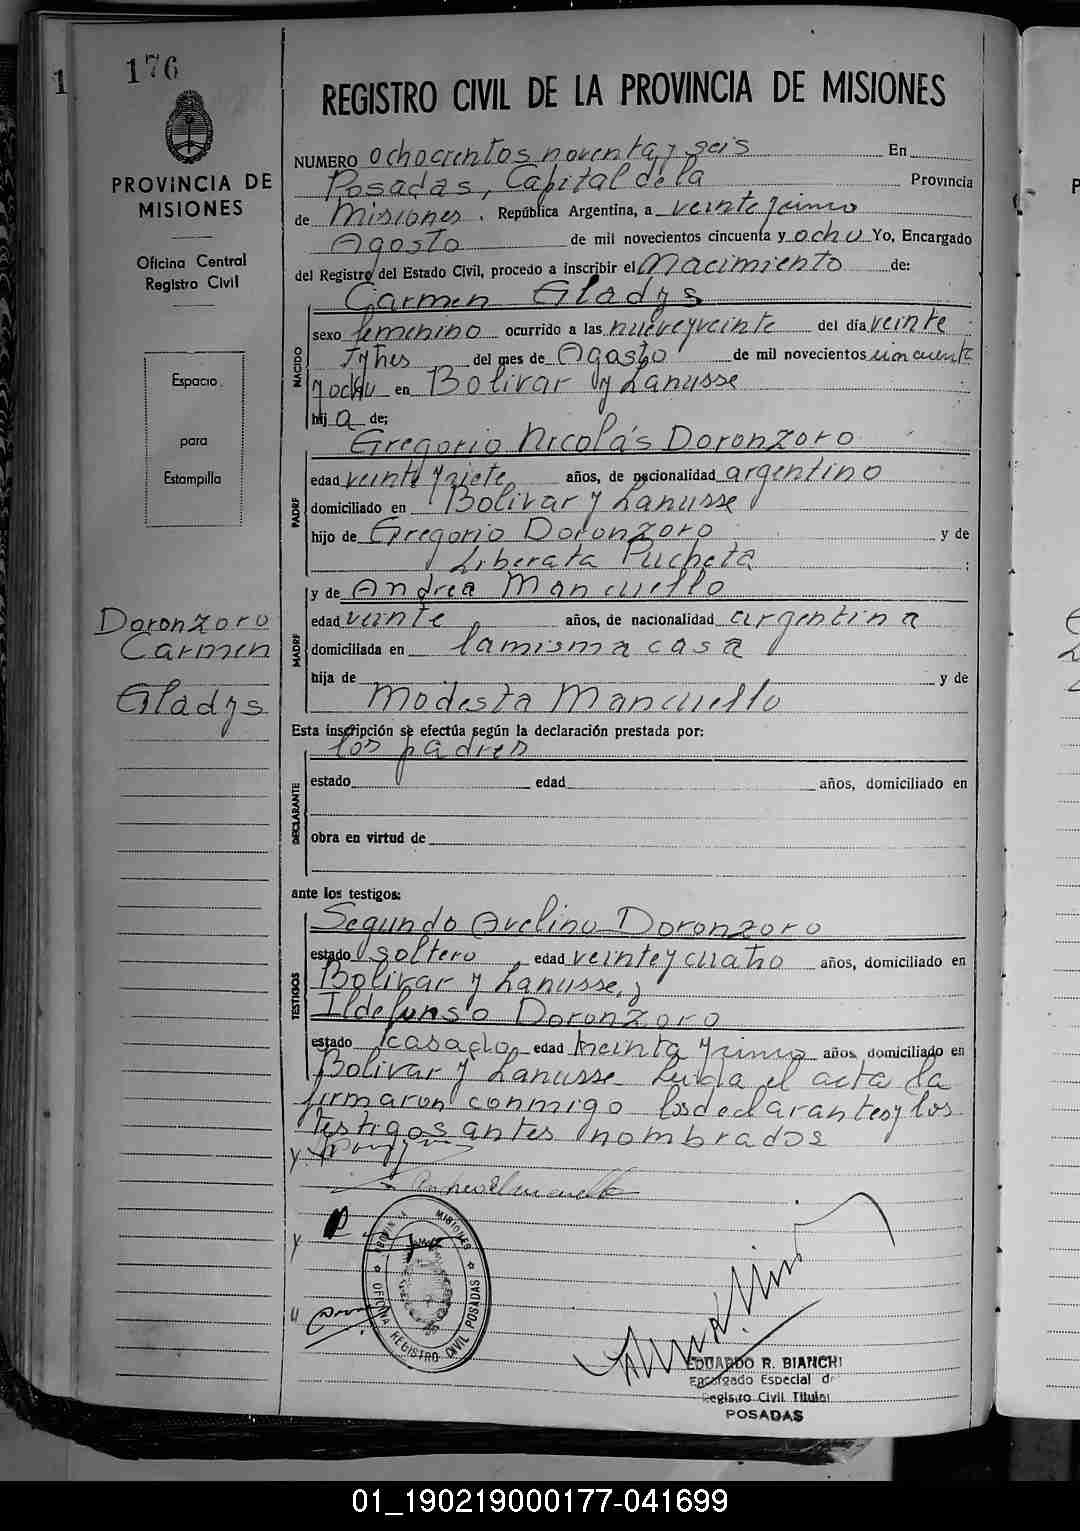 176
1
PROVINCIA DE
MISIONES
Oficina Central
Registro Civil
Espacio
para
Estampilla
Doronzoro
Carmen
Gladys
REGISTRO CIVIL DE LA PROVINCIA DE MISIONES
NUMERO ochocientos noventa y seis En
Posadas, Capital de la Provincia
de Misiones. República Argentina, a veinte y cinco
Agosto de mil novecientos cincuenta y ocho Yo, Encargado
del Registro del Estado Civil, procedo a inscribir el Nacimiento de:
Carmen Gladys
NACIDO
sexo femenino ocurrido a las nueve y veinte del día veinte
y tres del mes de Agosto de mil novecientos cincuenta
y ocho en Bolivar y Lanusse
hij a de;
Gregorio Nicolás Doronzoro
PADRE
edad veinte y siete años, de nacionalidad argentino
domiciliado en Bolivar y Lanusse
hijo de Gregorio Doronzoro y de
Liberata Pucheta
y de Andrea Mancuello
MADRE
edad veinte años, de nacionalidad argentina
domiciliada en la misma casa
hija de y de
Modesta Mancuello
Esta inscripción se efectúa según la declaración prestada por:
los padres
DECLARANTE
estado edad años, domiciliado en
obra en virtud de
ante los testigos:
TESTIGOS
Segundo Avelino Doronzoro
estado soltero edad veinte y cuatro años, domiciliado en
Bolivar y Lanusse, y
Ildefonso Doronzoro
estado casado edad treinta y cinco años, domiciliado en
Bolivar y Lanusse Leida el acta la
firmaron conmigo los declarantes y los
testigos antes nombrados
Andrea Mancuello
MISIONES
OFICINA REGISTRO CIVIL POSADAS
EDUARDO R. BIANCHI
Encargado Especial de
Registro Civil Titular
POSADAS
01_190219000177-041699